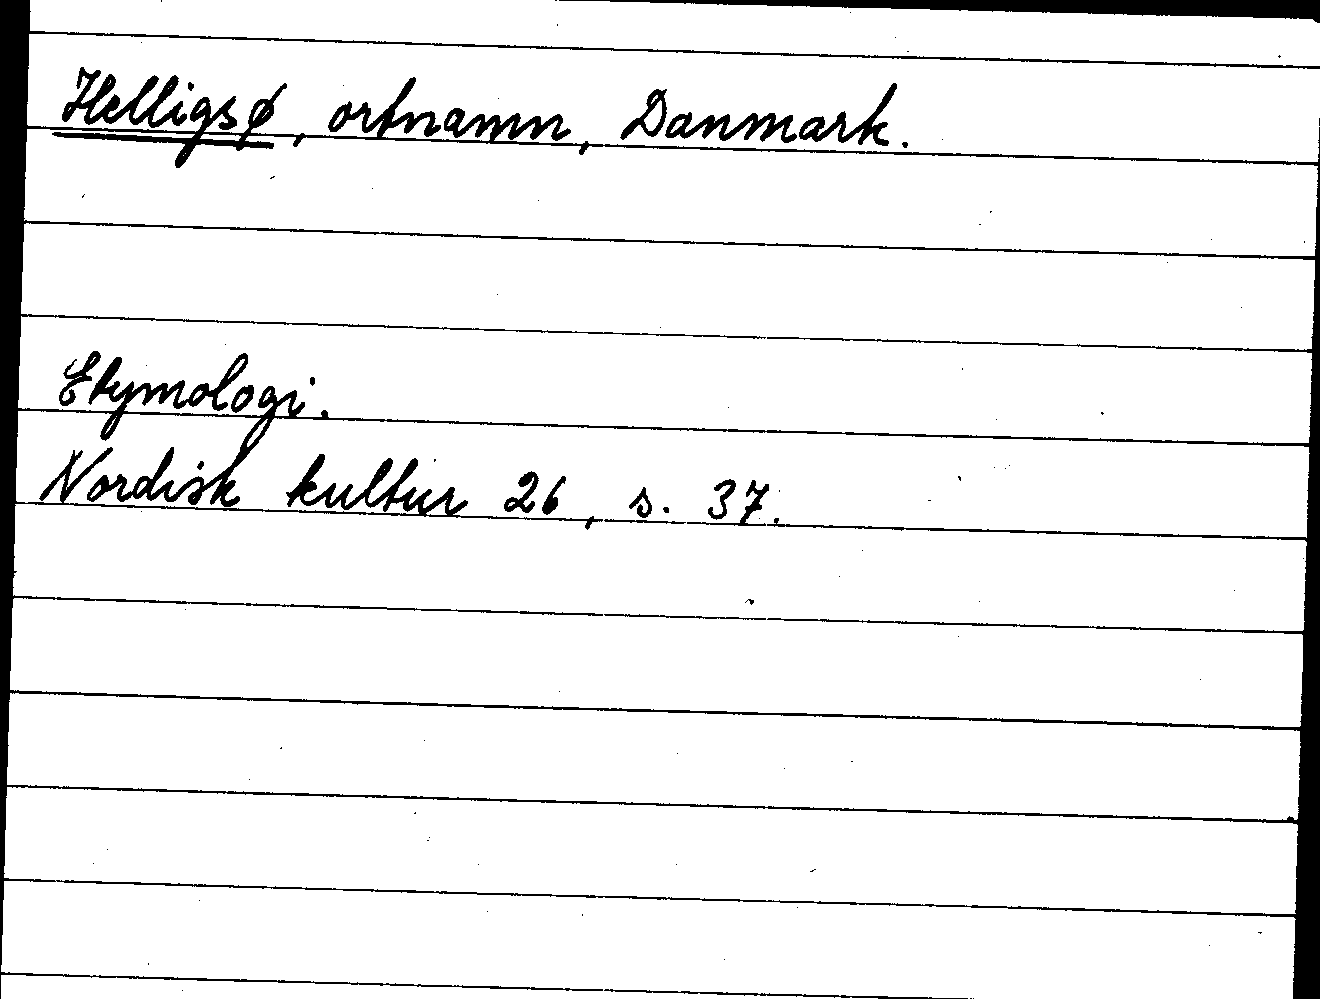 Helligsø, ortnamn, Danmark.
Etymologi.
Nordisk kultur 26, s. 37.